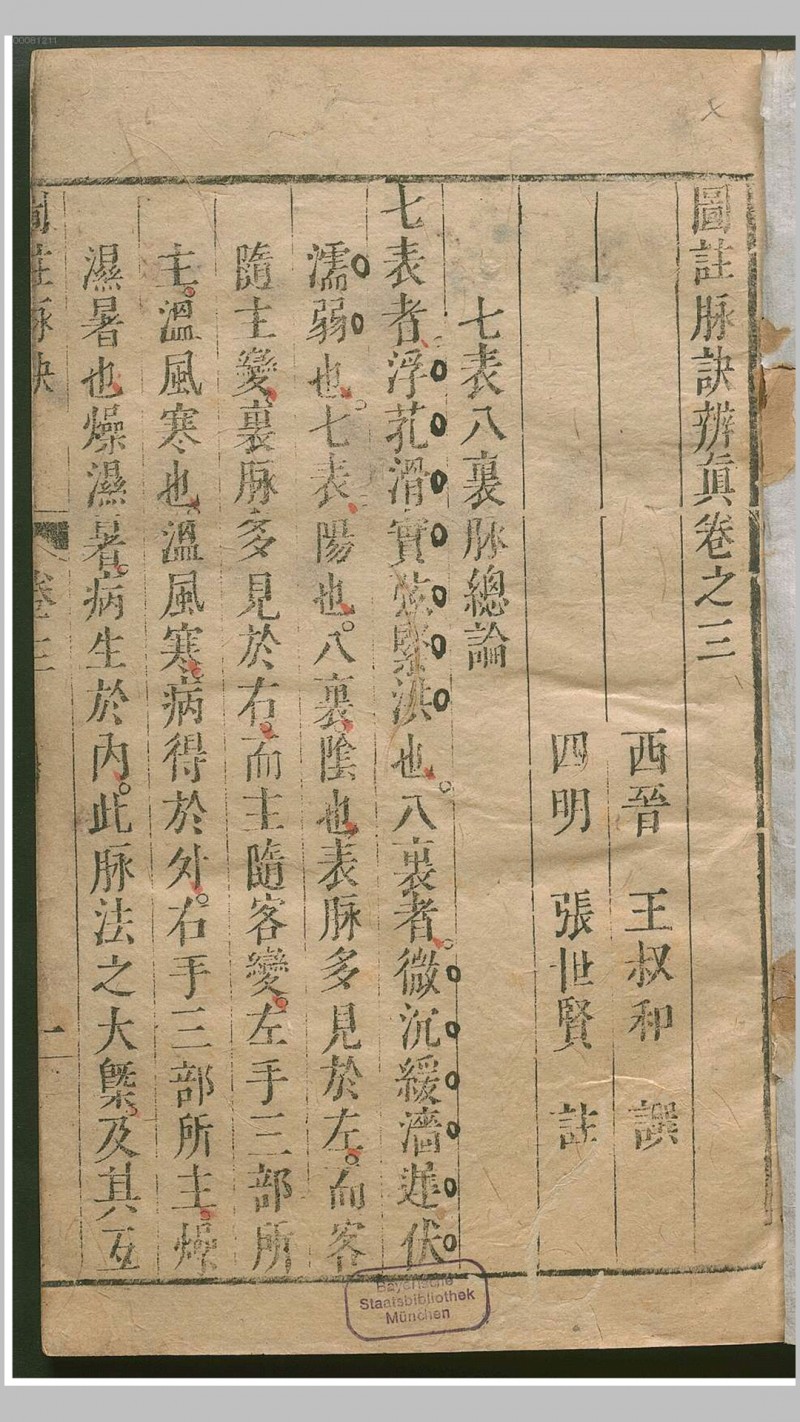 圖註脉訣辨眞卷之三
西晉 王叔和 譔
四明 張世賢 註
七表八裏脉總論
七表者浮芤滑實弦緊洪也八裏者微沉緩濇遲伏
濡弱也七表陽也八裏陰也表脉多見於左而客
隨主變裏脉多見於右而主隨客變左手三部所
主溫風寒也溫風寒病得於外右手三部所主燥
濕暑也燥濕暑病生於內此脉法之大槩及其互
圖註脉訣
卷三
一
Bayerische
Staatsbibliothek
München
00081211